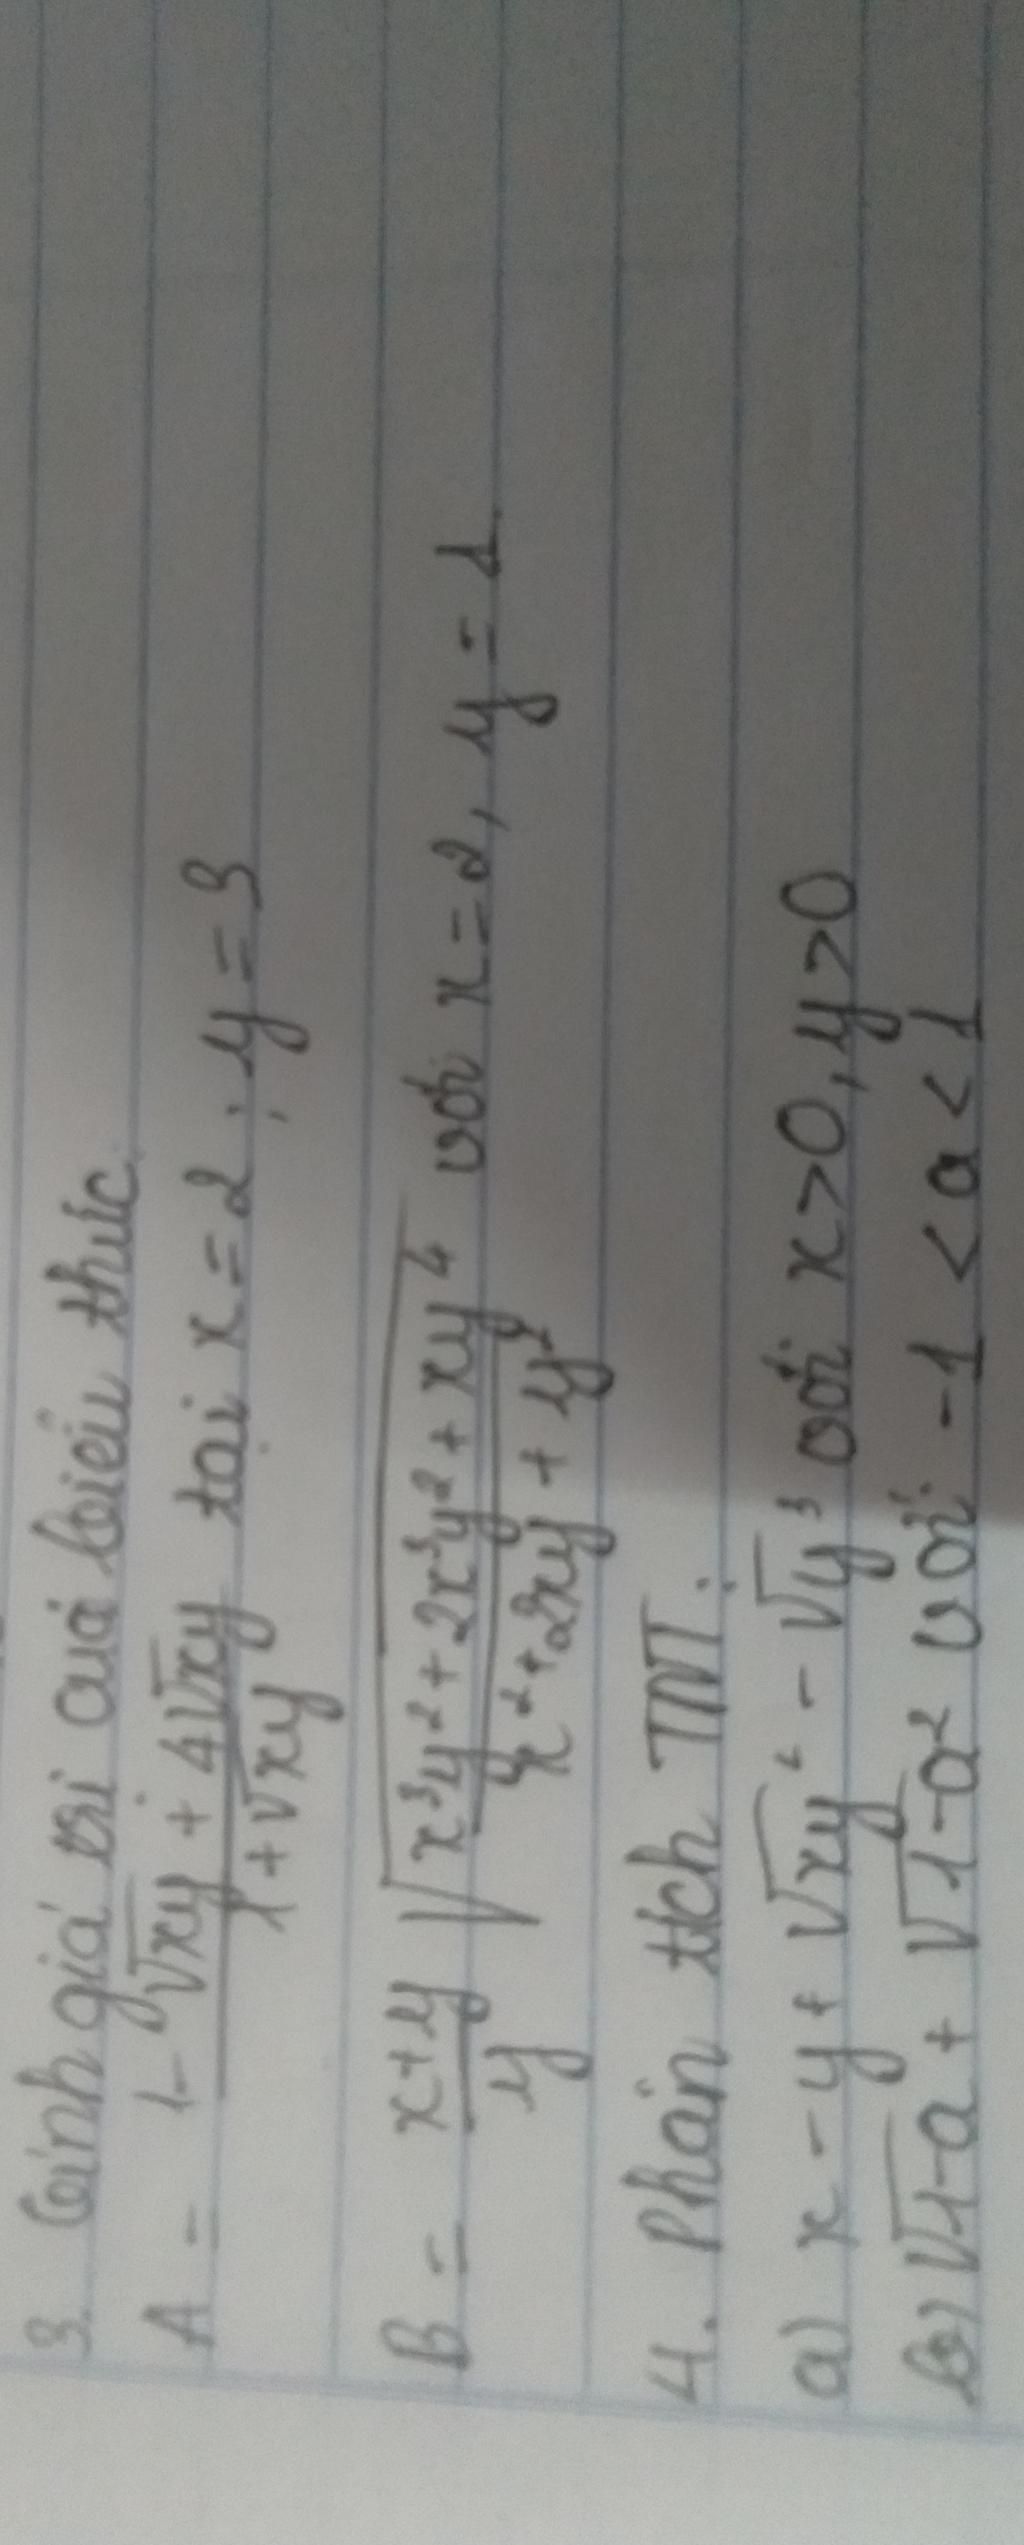 3. Tính giá trị của biểu thức.
A = (1 - √xy + 4√xy)/(1 + √xy) tại x = 2 ; y = 3
B = (x + y)/y √((x³y² + 2x³y² + xy⁴)/(x² + 2xy + y²)) với x = 2, y = 1
4. Phân tích TNT:
a) x - y + √xy² - √y³ với x > 0, y > 0
b) √1-a + √1-a² với -1 < a < 1